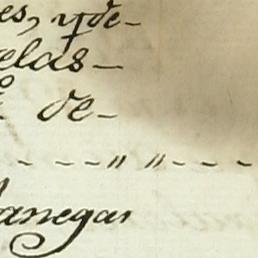 es, y de-
elas-
de-
- - - -"  "- - - -
anegas